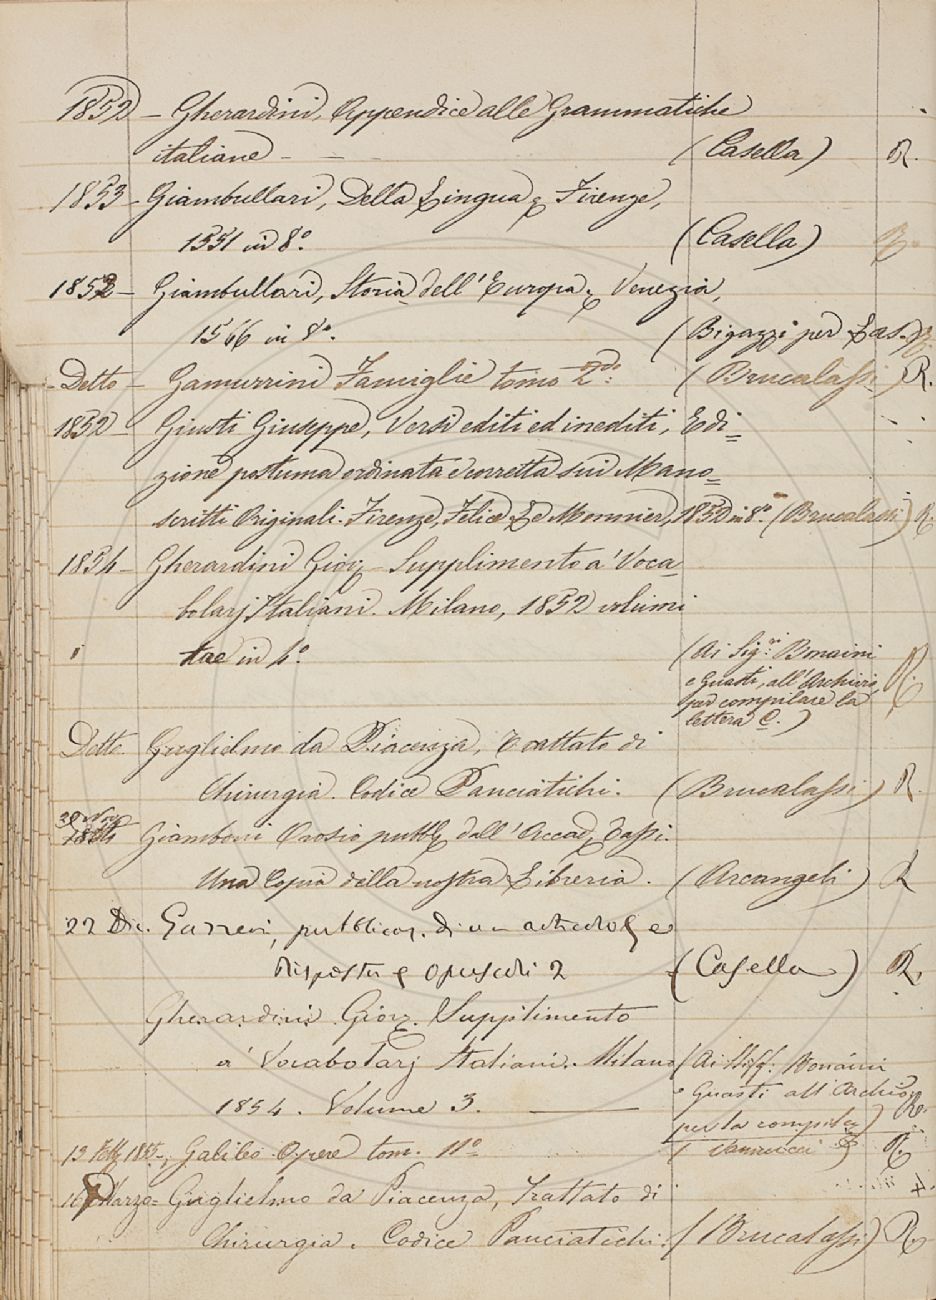 1852 - Gherardini, Appendice alle Grammatiche
italiane - - - (Casella) R.
1853 - Giambullari, Della Lingua, Firenze,
1551 in 8.º (Casella) R.
1852 - Giambullari, Storia dell'Europa, Venezia,
1566 in 8.º (Bigazzi per Las.) R.
Detto - Gamurrini Famiglie tomo 2.do (Brucalassi) R.
1852 - Giusti Giuseppe, Versi editi ed inediti, Edi=
zione postuma ordinata e corretta sui Mano=
scritti Originali. Firenze, Felice Le Monnier, 1852 in 8.º (Brucalassi) R.
1854 - Gherardini Giov. - Supplimento a' Voca-
bolarj Italiani. Milano, 1852 volumi
tre in 4.º (Ai Sig.ri Bonaini
e Guasti, all'Archivio, R.
per compilare la
lettera C.)
Detto Guglielmo da Piacenza, Trattato di
Chirurgia. Codice Panciatichi. (Brucalassi) R.
Giamboni Orosio pubb. dall'Accad. Tassi.
Una Copia della nostra Libreria. (Arcangeli) R
22 Dic. pubblicaz. di un articolo e
Risposta e opuscoli 2 (Casella) R.
Gherardini Giov. Supplimento
a' Vocabolarj Italiani. Milano (Ai Bonaini
1854. Volume 3. e Guasti all'Archivio R.
per la compilaz.)
Galileo Opere tom. 11º (Vannucci) R.
16 Marzo - Guglielmo da Piacenza, Trattato di
Chirurgia. Codice Panciatichi. (Brucalassi) R.